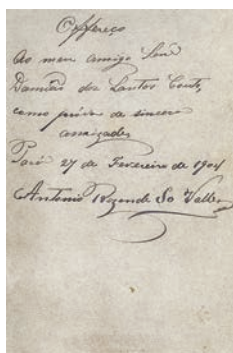 Offereço
Ao meu amigo Snr
Damião dos Santos Couto,
como próva de sincera
amizade,
Pará 27 de Fevereiro de 1904
Antonio Rezende do Valle